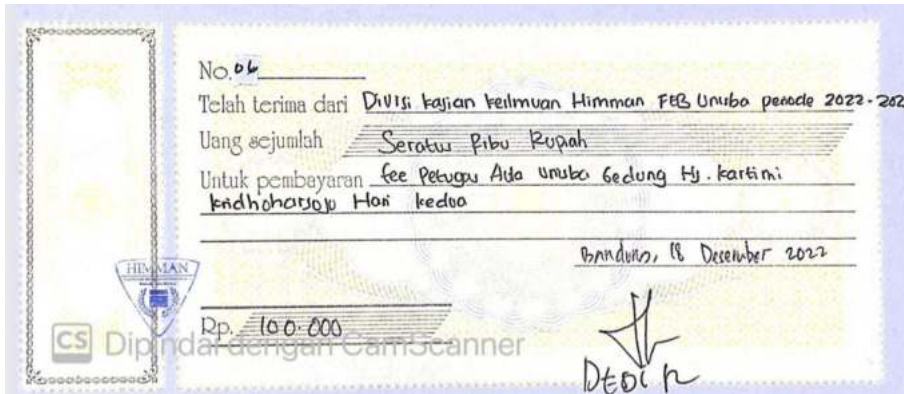 No. 06
Telah terima dari Divisi kajian keilmuan Himman FEB Unisba periode 2022-202
Uang sejumlah Seratus Ribu Rupiah
Untuk pembayaran fee Petugas Aula unisba Gedung Hj. kartimi
kridhoharsojo Hari kedua
Bandung, 18 Desember 2022
HIMMAN
Rp. 100.000
CS Dipindai dengan CamScanner